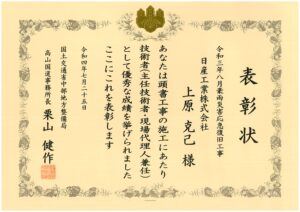 表彰状
令和三年八月豪雨災害応急復旧工事
日産工業株式会社
上原 克己 様
あなたは頭書工事の施工にあたり
技術者(主任技術者・現場代理人兼任)
として優秀な成績を挙げられました
ここにこれを表彰します
令和四年七月二十五日
国土交通省中部地方整備局
高山国道事務所長 栗山 健作